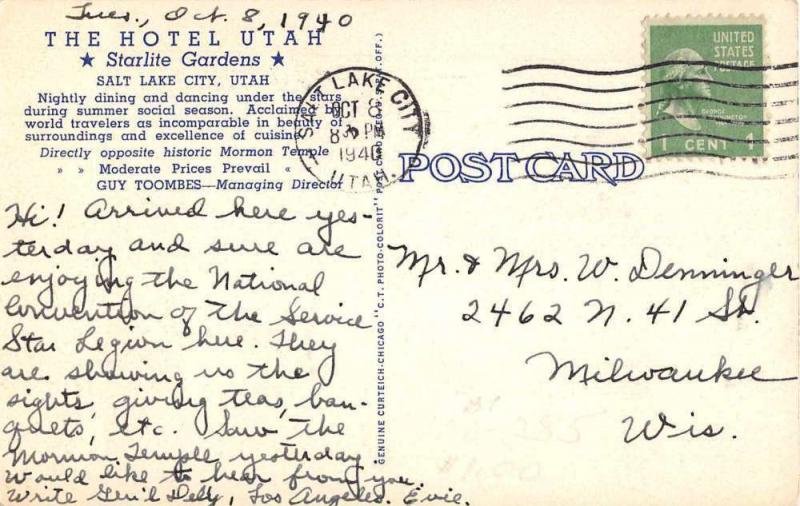 Tues., Oct. 8, 1940
THE HOTEL UTAH
★ Starlite Gardens ★
SALT LAKE CITY, UTAH
Nightly dining and dancing under the stars
during summer social season. Acclaimed by
world travelers as incomparable in beauty of
surroundings and excellence of cuisine.
Directly opposite historic Mormon Temple
» » Moderate Prices Prevail «
GUY TOOMBES—Managing Director
Hi! Arrived here yes-
terday and sure are
enjoying the National
Convention of the Service
Star Legion here. They
are showing us the
sights, giving teas, ban-
quets, etc. Saw the
Mormon Temple yesterday.
Would like to hear from you.
Write Gen'l Del'y, Los Angeles. Evie.
GENUINE CURTEICH-CHICAGO "C.T. PHOTO-COLORIT" POST CARD (REG. U.S. PAT. OFF.)
SALT LAKE CITY
OCT 8
8 PM
1940
UTAH
POST CARD
UNITED
STATES
POSTAGE
GEORGE
WASHINGTON
1 CENT 1
Mr. & Mrs. W. Denninger
2462 N. 41 St.
Milwaukee
Wis.